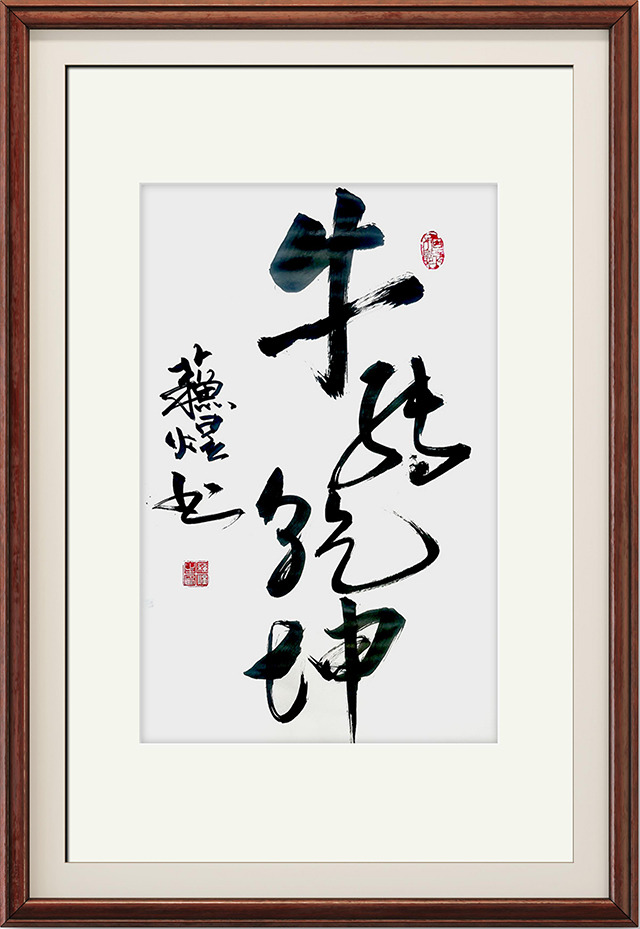 牛转乾坤
蘇煜书